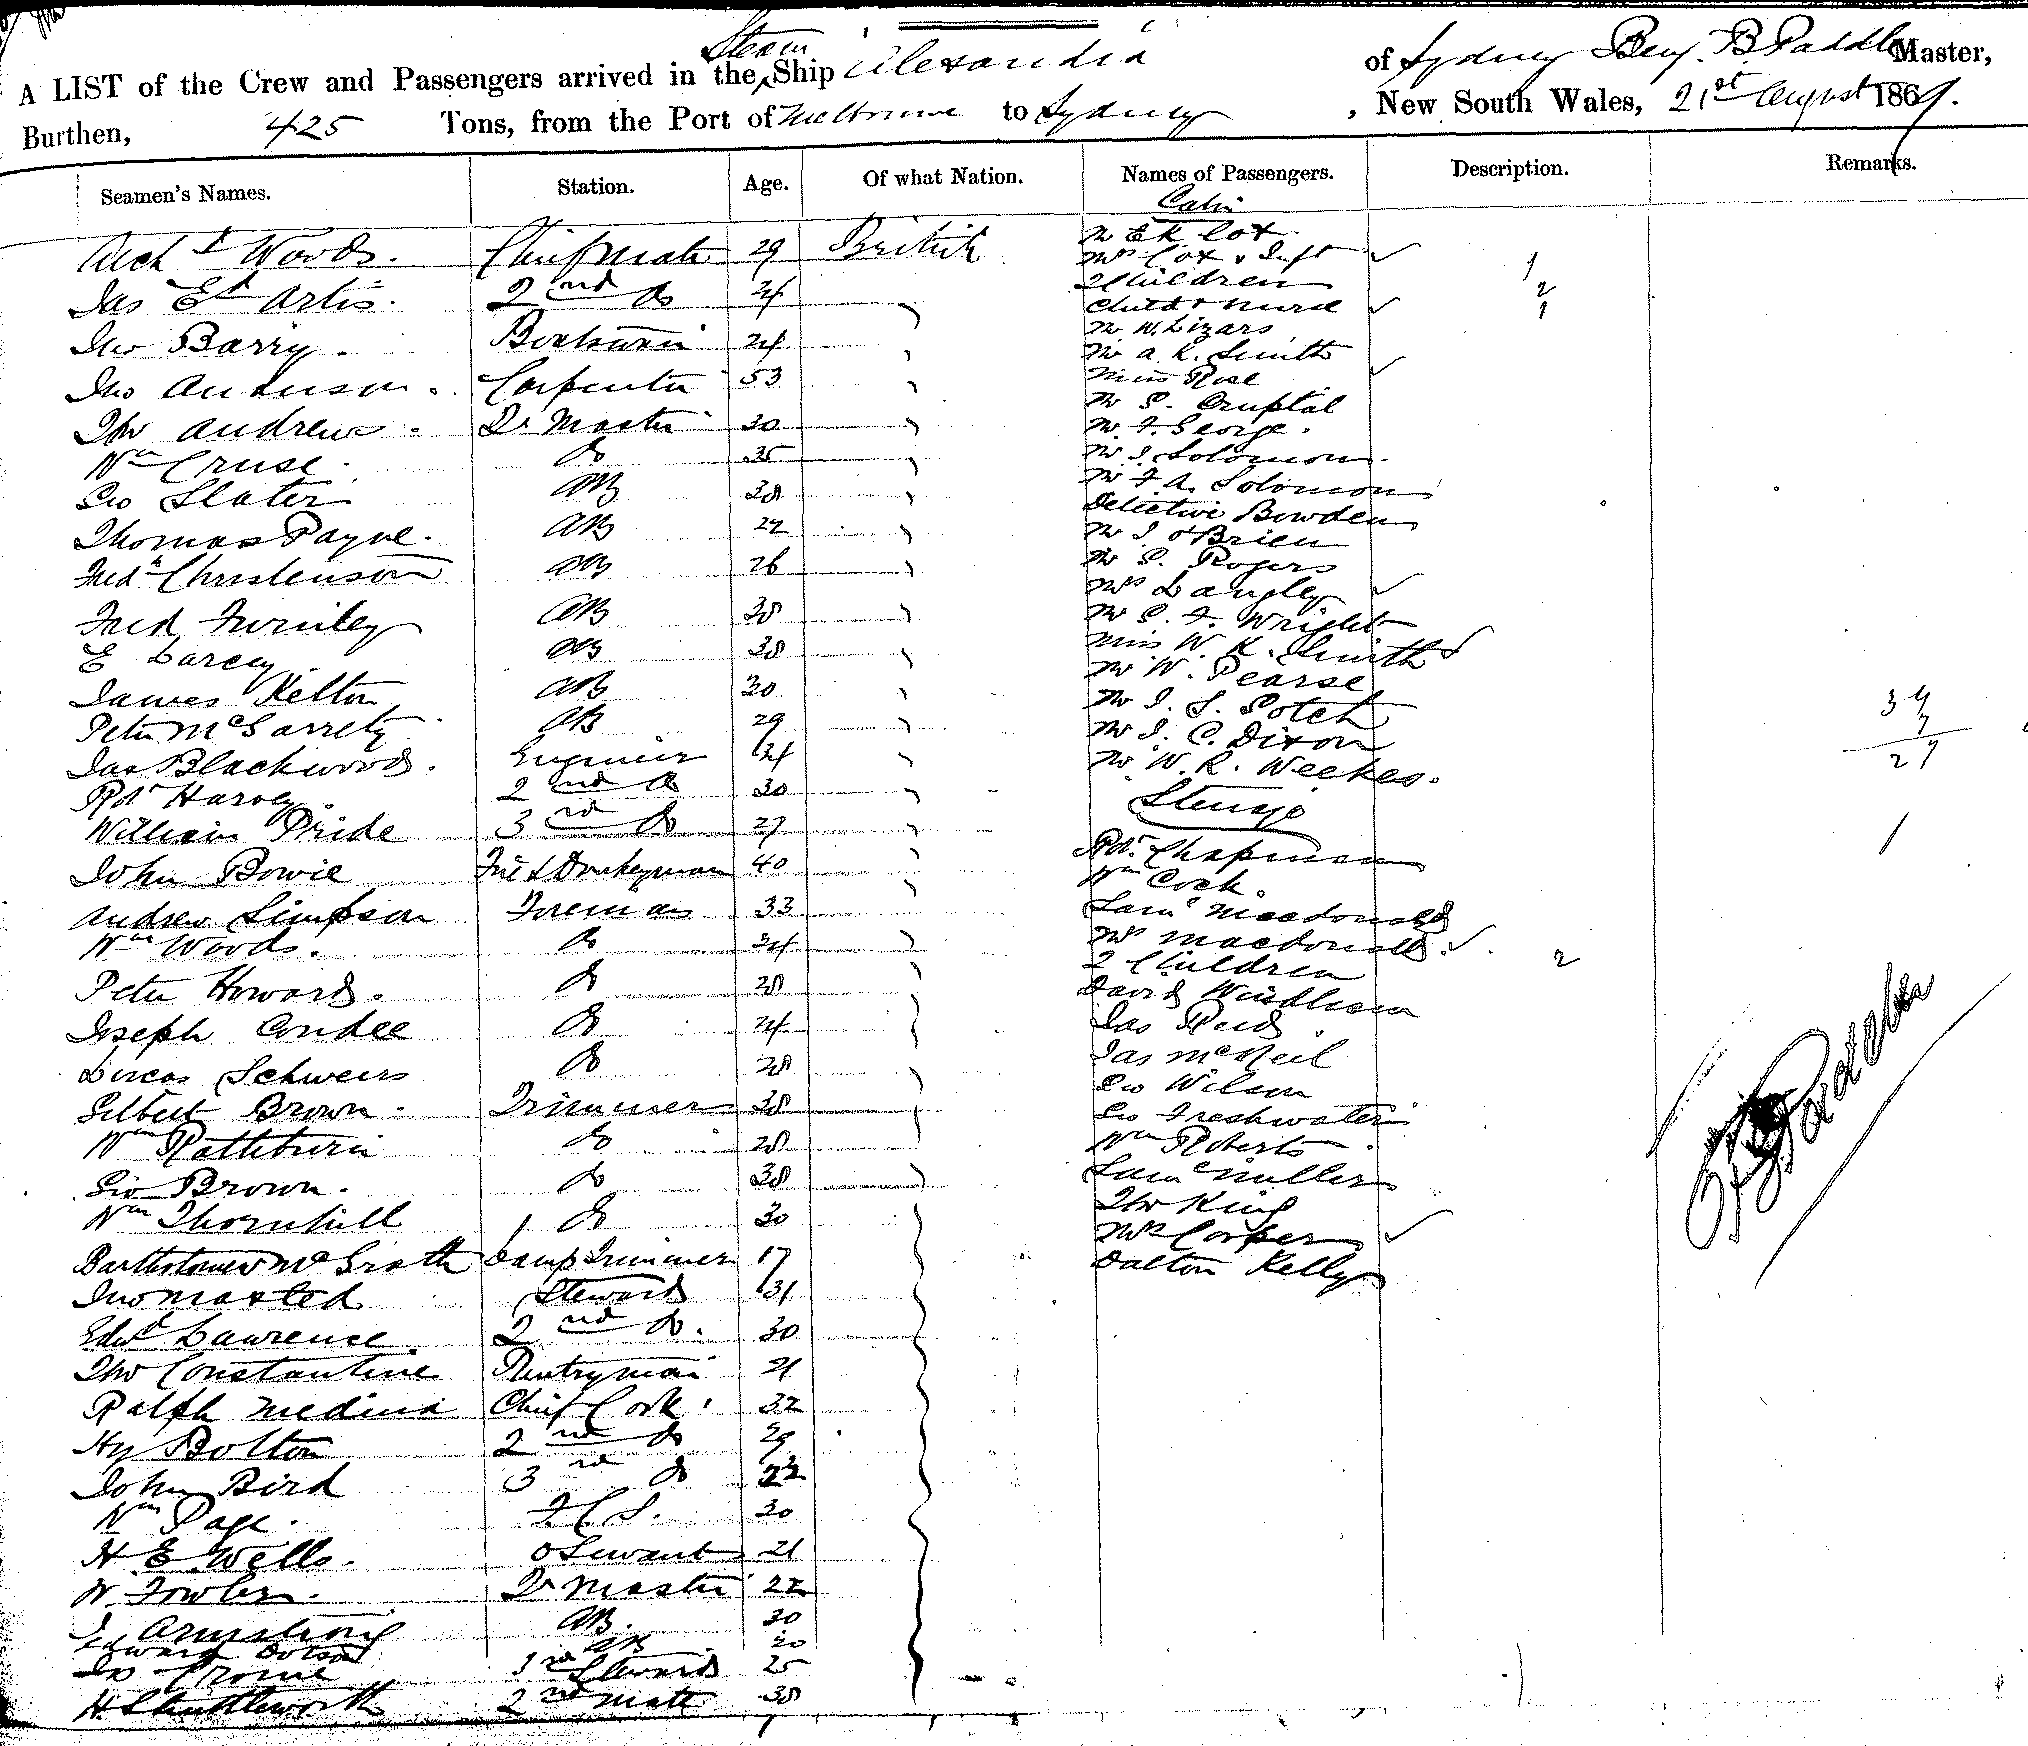 Steam
A LIST of the Crew and Passengers arrived in the Ship Alexandra of Sydney Benj. B. Paddle Master,
Burthen, 425 Tons, from the Port of Melbourne to Sydney, New South Wales, 21st August 1869.
Seamen's Names. Station. Age. Of what Nation. Names of Passengers. Description. Remarks.
Cabin
Archd Woods. Chief Mate 29 British
Jas Ed Artis. 2nd Do 24
Jno Barry. Boatswain 24
Jno Anderson. Carpenter 53
Thos Andrews. Qr Master 30
Wm Cruse. Do 35
Geo Slater AB 28
Thomas Payne. AB 22
Fredk Christenson AB 26
Fred AB 38
E Darcy AB 38
James Kelton AB 30
Peter McGarrety AB 29
Jas Blackwood. Engineer 34
Rdt Harvey 2nd Do 30
William Pride 3rd Do 27
John Bowie Fire & Donkeyman 40
Andrew Simpson Fireman 33
Wm Woods. Do 34
Peter Howard. Do 28
Joseph Condee Do 24
Schweers Do 28
Gilbert Brown. Trimmer 38
Wm Rathburn Do 28
Geo Brown. Do 38
Wm Thornhill Do 30
Bartholomew McGrath Lamp Trimmer 17
Jno Maxted Steward 31
Edwd Lawrence 2nd Do. 30
Thos Constantine Pantryman 21
Ralph Medina Chief Cook. 32
Hy Bolton 2nd Do 29
John Bird 3rd Do 22
Wm Page. F.C.S. 30
H E Wells. O Servant 21
W. Fowler. Qr Master 22
J Armstrong AB. 30
Edward AB 20
Crome 3rd Steward 25
H Shuttleworth 2nd Mate 38
Mr E K Cox
Mrs Cox & Inft
2 Children
Child & Nurse
Mr W. Lizars
Mr A. K. Smith
Miss Rose
Mr S.
Mr F. George.
Mr J. Solomon
Mr F A. Solomon
Detective Bowden
Mr J O'Brien
Mr S. Rogers
Mrs Langley
Mr C. F. Wright
Miss W. K. Smith
Mr W. Pearse
Mr J. S. Potch
Mr J. C. Dixon
Mr W. R. Weekes.
Steerage
Rdt. Chapman
Wm Cock.
Saml Macdonald
Mrs Macdonald.
2 Children
David Windham
Jas Reid
Jas McNeil
Geo Wilson
Geo Freshwater
Wm Roberts
Saml Miller
Thos King
Mrs Cooper
Dalton Kelly
1
2
1
2
34
7
27
1
B B Paddle